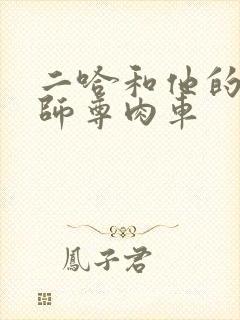 二哈和他的
師尊肉車
鳳子君